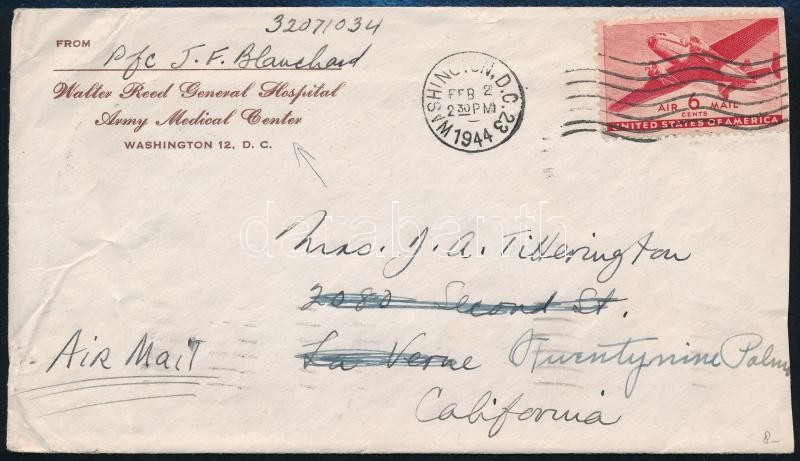 32071034
FROM Pfc J. F. Blanchard
Walter Reed General Hospital
Army Medical Center
WASHINGTON 12, D. C.
WASHINGTON, D.C. 23
FEB 2
230PM
1944
AIR 6 MAIL
CENTS
UNITED STATES OF AMERICA
darabanth
Mrs. J. A. Titterington
2080 Second St.
Air Mail
La Verne Twentynine Palms
California
8-